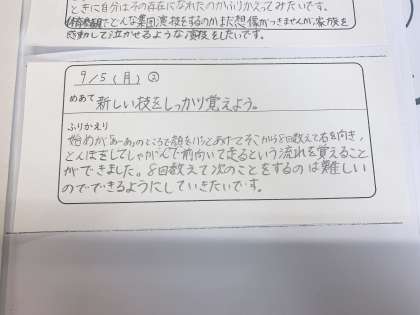 ときに自分はその存在になれたのかふりかえってみたいです。
体育館でどんな集団演技をするのかまだ想像がつきませんが、家族を
感動して泣かせるような演技をしたいです。
9/5(月)②
めあて 新しい技をしっかり覚えよう。
ふりかえり
始めが「あーあ」のところで顔をバッとあげてそこから8回数えて右を向き、
とんぼをしてしゃがんで前向いて走るという流れを覚えること
ができました。8回数えて次のことをするのは難しい
のでできるようにしていきたいです。